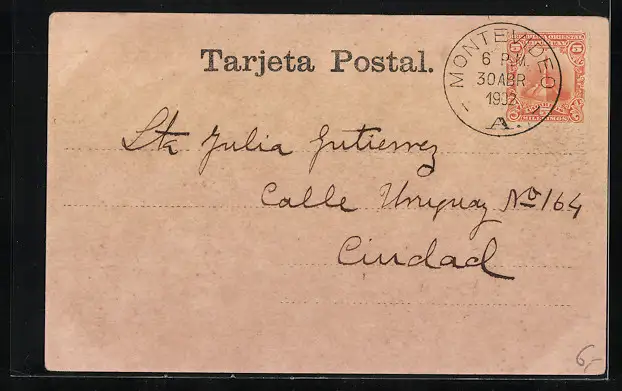 Tarjeta Postal.
MONTEVIDEO
6 P.M.
30 ABR
1902
A.
5 5
Sta Julia Gutierrez
Calle Uruguay No 164
Ciudad
6,-